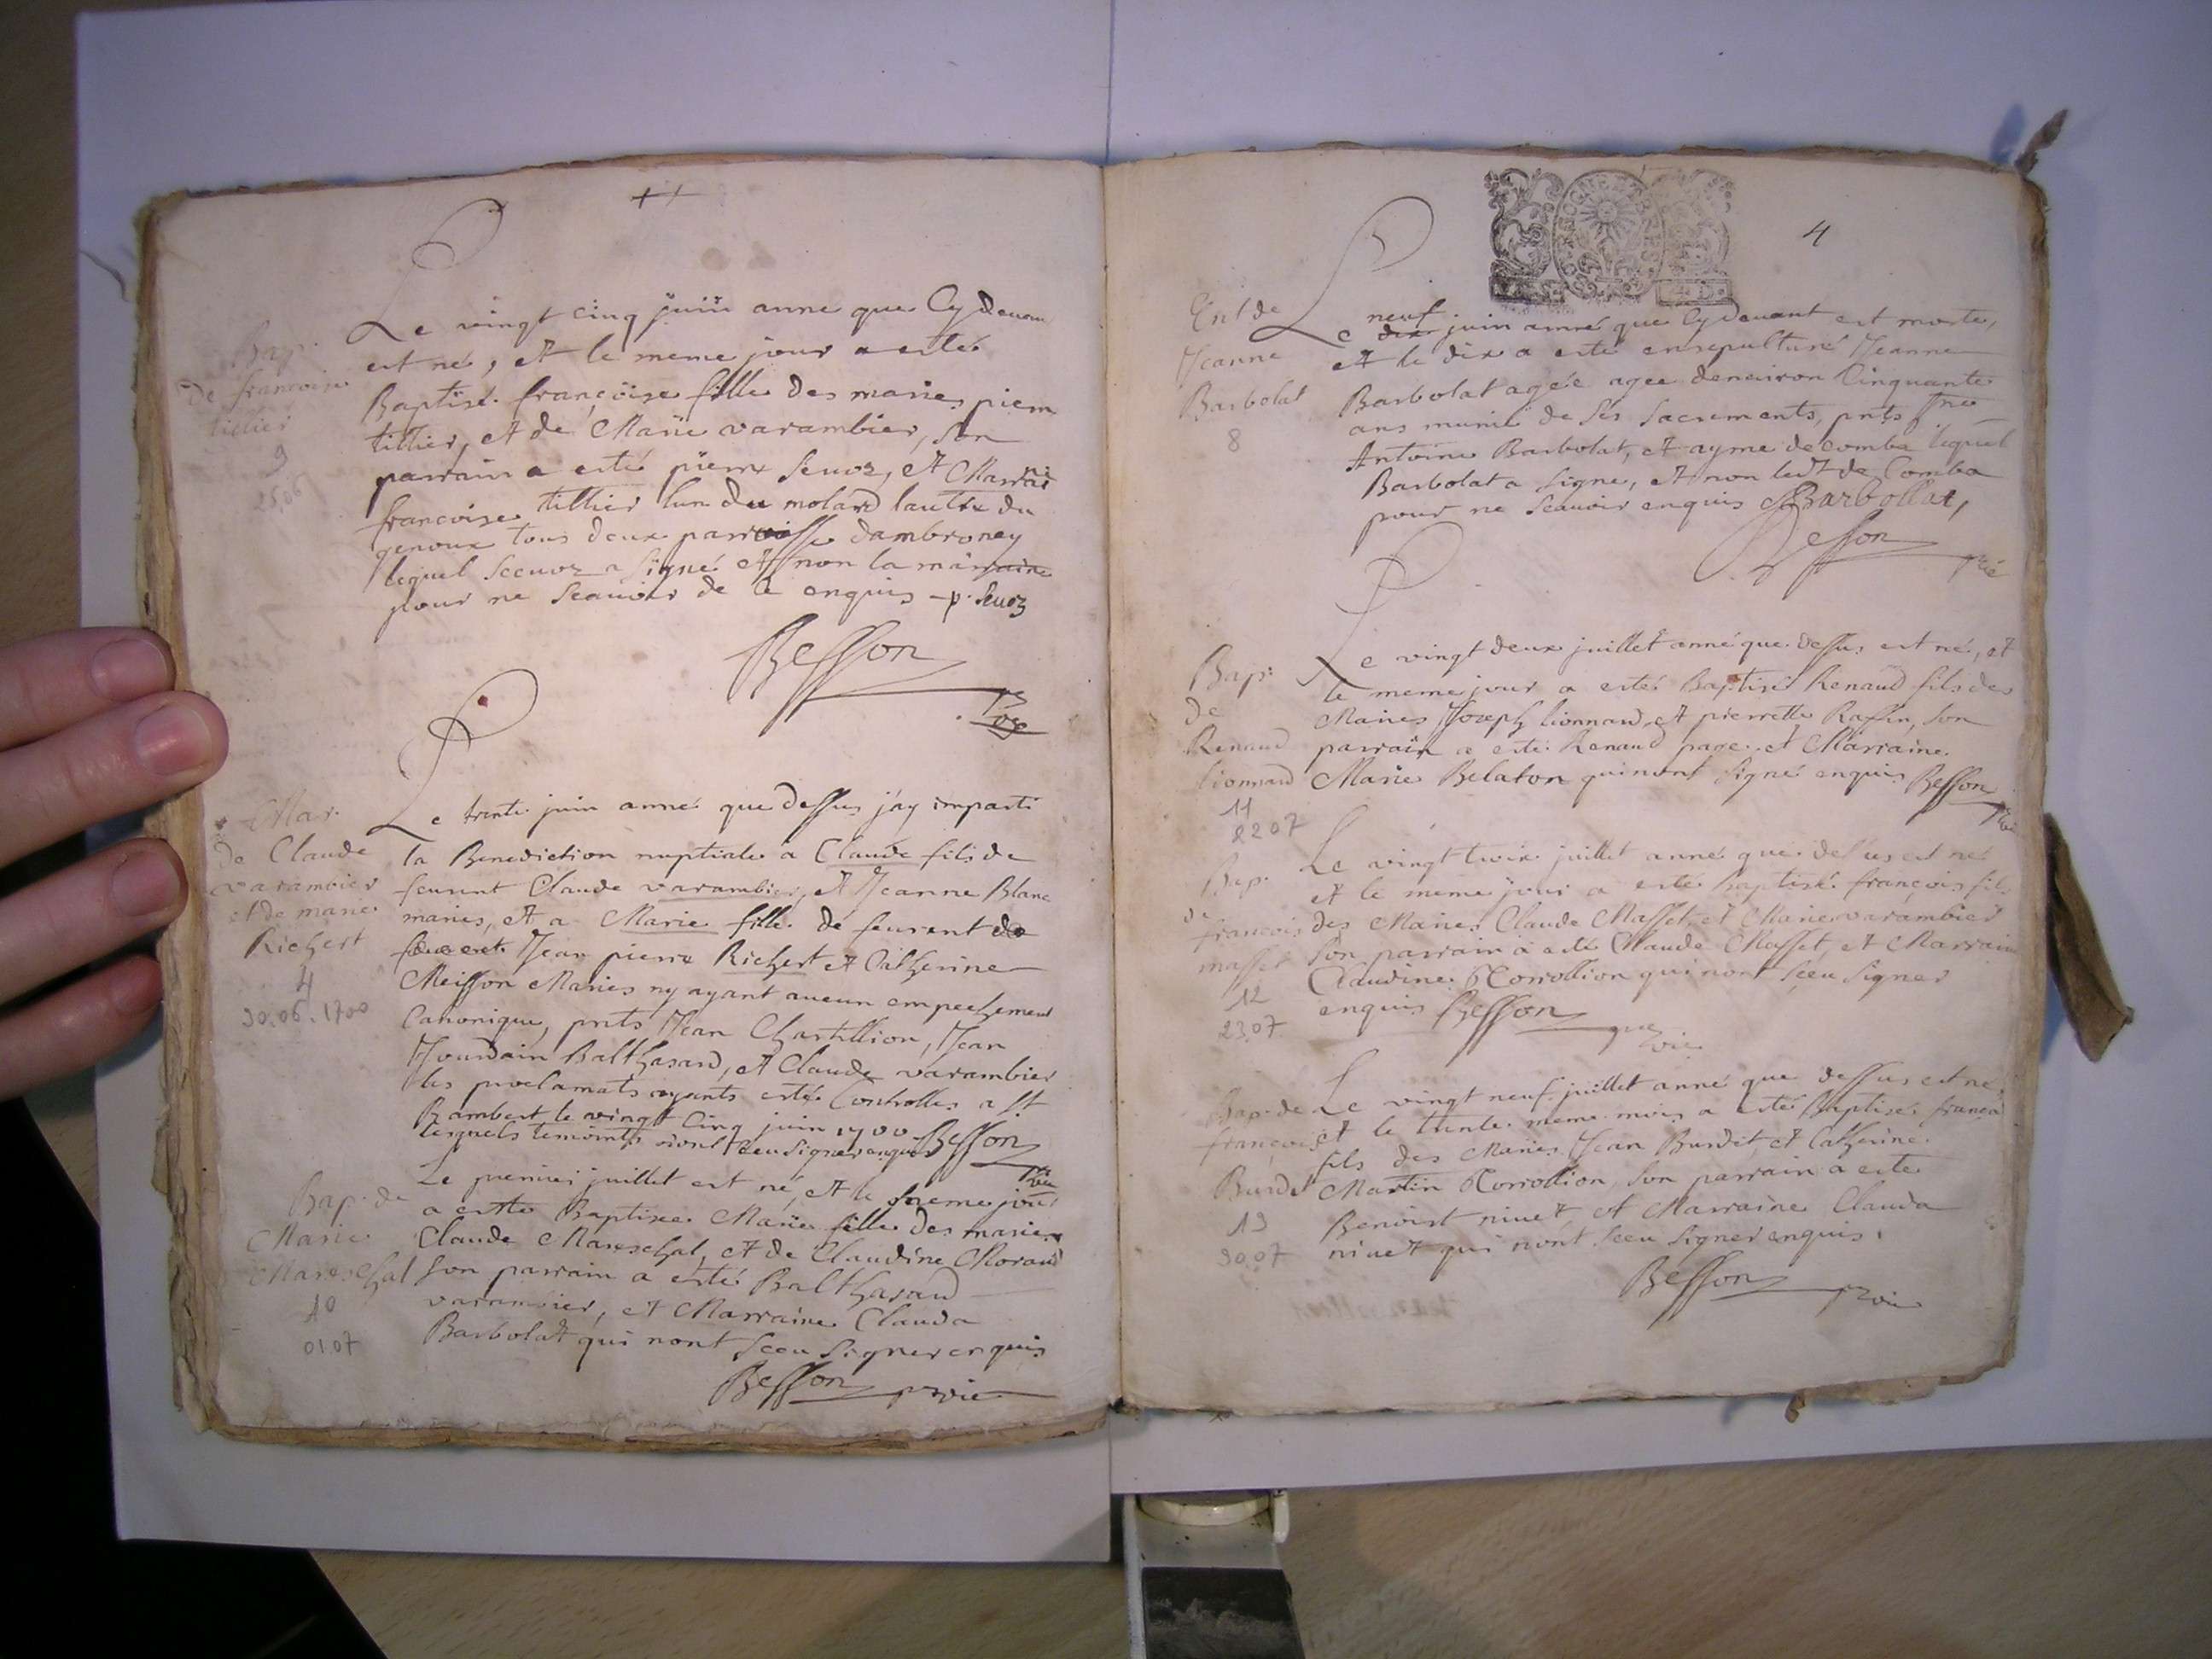 Bap.
De francoise
tillier
9
25.06
Le vingt cinq juin anne que Cy devant
est né, et le meme jour a esté
Baptisé françoise fille des maries pierre
tillier, et de Marie varambier, son
parrain a esté pierre Seuoz, et Marrai
francoise tillier lun du molard lautre du
genoux tous deux parroisse dambronay
lequel Sceuoz a signé et non la marraine
pour ne sceauoir de ce enquis p. Seuoz
Besson
Mar.
de Claude
varambier
et de marie
Richert
4
30.06.1700
Le trente juin anné que dessus j'ay imparti
la Benediction nuptiale a Claude fils de
feurent Claude varambier, et Jeanne Blanc
maries, et a Marie fille de feurent
Jean pierre Richert et Catherine
Meisson Maries ny ayant aucun empechement
Canonique, pnts Jean Chastillion, Jean
Jourdain Balthasard, et Claude varambier
les proclamats ayants esté Controlles a St
Rambert le vingt Cinq juin 1700
lesquels temoints nont sceu signer enquis Besson
Bap. de
Marie
Mareschal
10
01.07
Le premier juillet est né, et le meme jour
a estte Baptisee Marie fille des maries
Claude Mareschal, et de Claudine Moraud
son parrain a esté Balthasard
varambier, et Marraine Clauda
Barbolat qui nont sceu signer enquis
Besson
4
Ent de
Jeanne
Barbolat
8
neuf
Le dix juin anné que Cy devant est morte,
et le dix a esté ensepulturé Jeanne
Barbolat agée agee denuiron Cinquante
ans munie de ses sacrements, pnts
Antoine Barbolat, et ayme decombe lequel
Barbolat a signe, et non ledt de Combe
pour ne sceauoir enquis Barbollat,
Besson
Bap:
de
Renaud
lionnard
11
22 07
Le vingt deux juillet anné que dessus est né, et
le meme jour a esté Baptisé Renaud fils des
Maries Joseph lionnard, et pierrette Raffin, son
parrain a esté Renaud page et Marraine
Marie Belaton qui nont signé enquis Besson
Bap.
de
francois
masset
12
23.07
Le vingt troix juillet anné que dessus est né
et le meme jour a esté baptisé françois fils
des Maries Claude Masset, et Marie varambier
son parrain a esté Claude Masset, et Marraine
Claudine Corrollion qui nont sceu signer
enquis Besson
Bap. de
françois
Burdet
13
30.07
Le vingt neuf juillet anné que dessus est né
et le trente meme mois a esté Baptisé françoi
fils des Maries Jean Burdet, et Catherine
Martin Corrollion, son parrain a esté
Benoist niuet et Marraine Clauda
niuet qui nont sceu signer enquis.
Besson